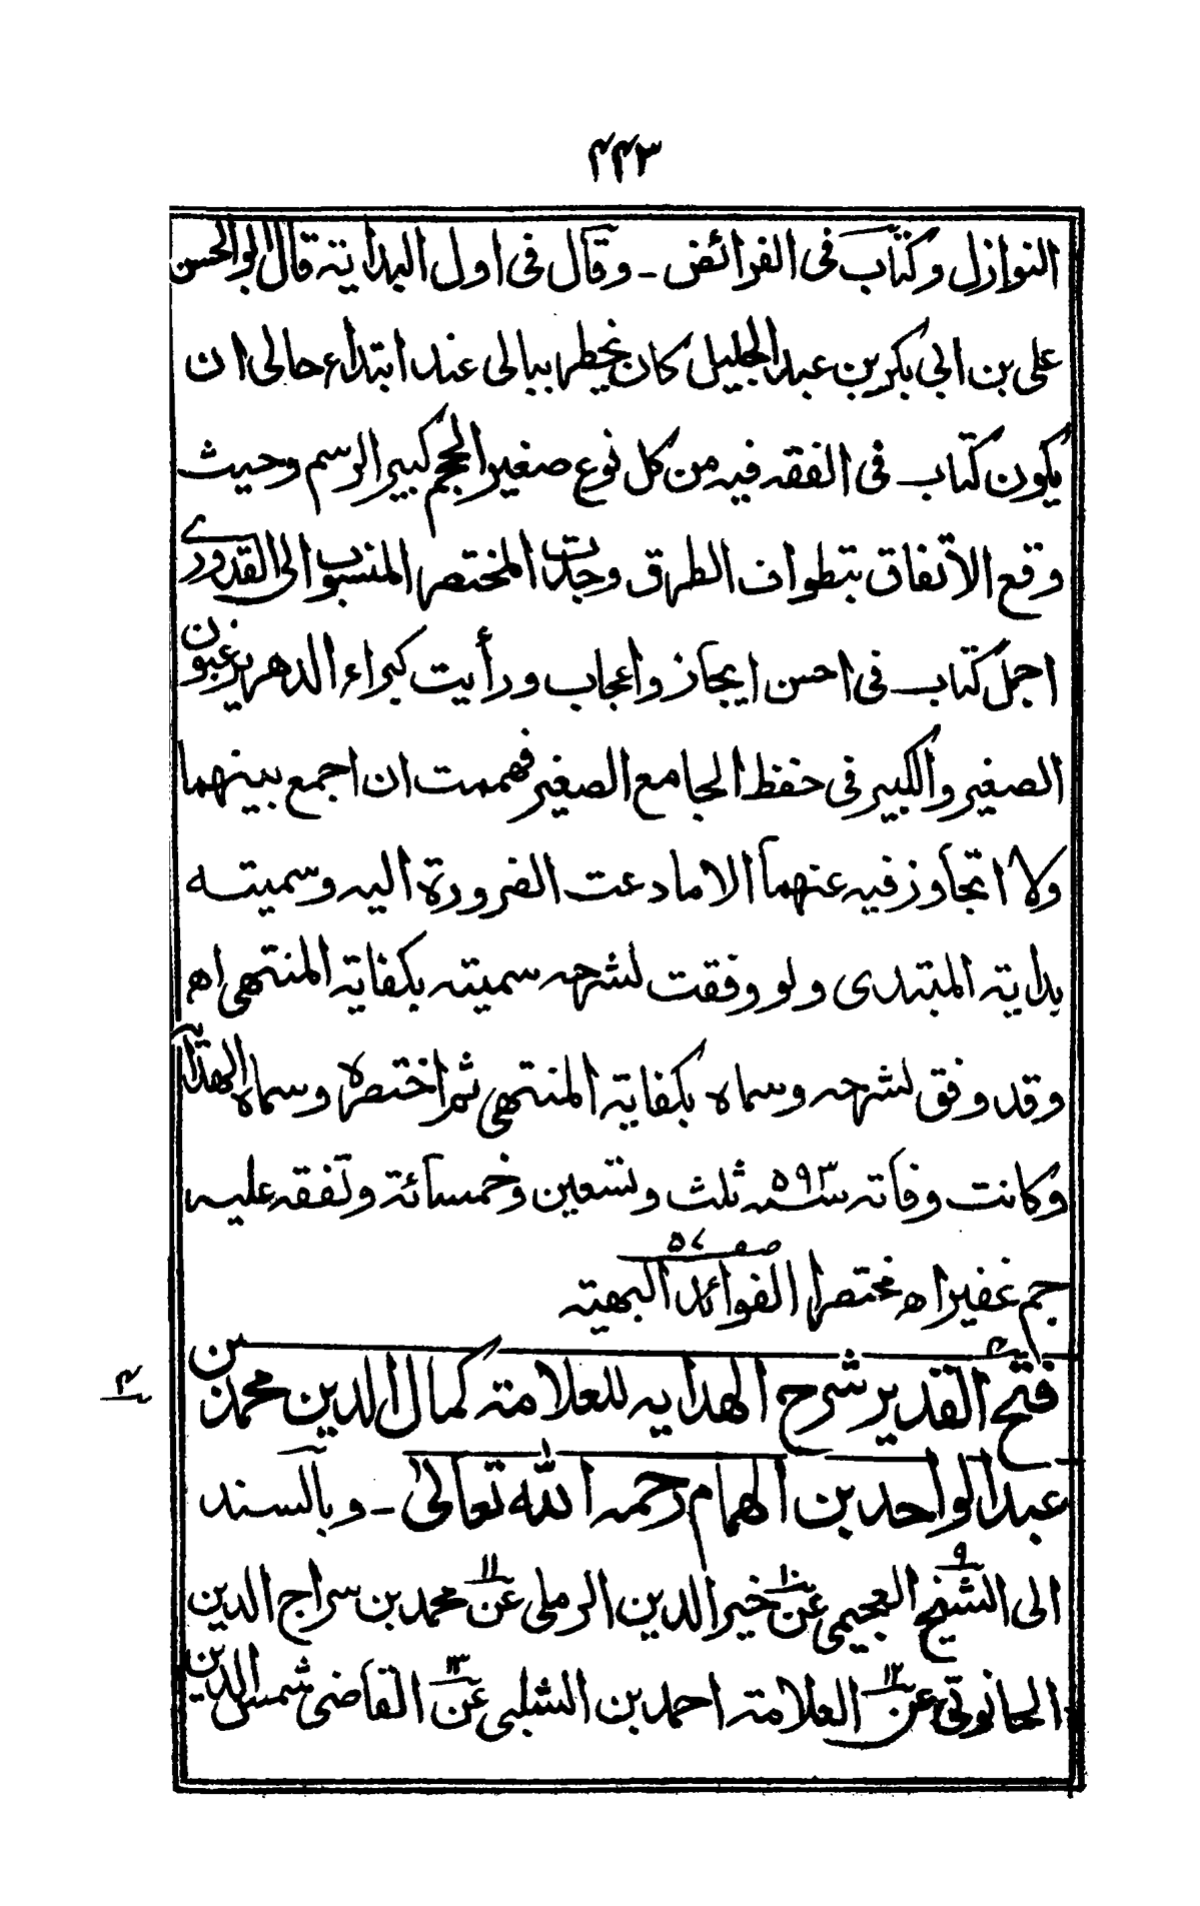 ٤٤٣
النوازل وكتاب فى الفرائض ـ وقال فى اول البداية قال ابو الحسن
على بن ابى بكر بن عبد الجليل كان يخطر ببالى عند ابتداء حالى ان
يكون كتاب فى الفقه فيه من كل نوع صغير الحجم كبير الرسم وحيث
وقع الاتفاق بتطواف الطرق وجدت المختصر المنسوب الى القدورى
اجمل كتاب فى احسن ايجاز واعجاب ورأيت كبراء الدهر يرغبون
الصغير والكبير فى حفظ الجامع الصغير فهممت ان اجمع بينهما
ولا اتجاوز فيه عنهما الا ما دعت الضرورة اليه وسميته
بداية المبتدى ولو وفقت لشرحه سميته بكفاية المنتهى اه
وقد وفق لشرحه وسماه بكفاية المنتهى ثم اختصره وسماه الهداية
وكانت وفاته سنه ٥٩٣ ثلث وتسعين وخمسمائة وتفقه عليه
جم غفير اه مختصرا الفوائد البهية صفـ ٥٧
فتح القدير شرح الهدايه للعلامة كمال الدين محمد بن
عبد الواحد بن الهمام رحمه الله تعالى ـ وبالسند
الى الشيخ ٩ العجيمى عن ١٠ خير الدين الرملى عن ١١ محمد بن سراج الدين
الحانوتى عن ١٢ العلامة احمد بن الشلبى عن ١٣ القاضى شمس الدين